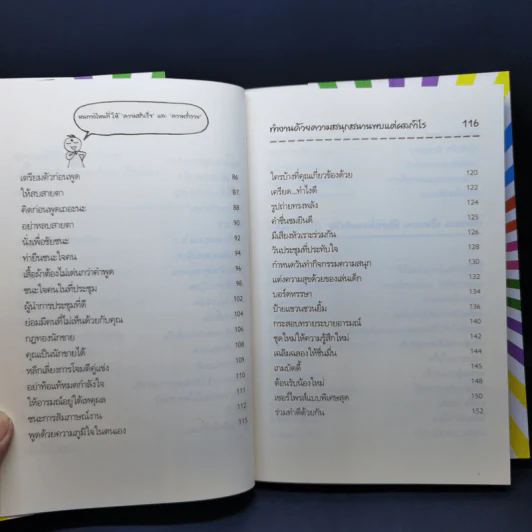 หนทางไหนที่ได้ "ความสำเร็จ" และ "ความร่ำรวย"
เตรียมตัวก่อนพูด 86
ให้สบสายตา 87
คิดก่อนพูดเถอะนะ 88
อย่าหลบสายตา 90
นั่งเพื่อชัยชนะ 92
ท่ายืนชนะใจคน 94
เสื้อผ้าต้องไม่เด่นกว่าคำพูด 96
ชนะใจคนในที่ประชุม 98
ผู้นำการประชุมที่ดี 102
ย่อมมีคนที่ไม่เห็นด้วยกับคุณ 104
กฎทองนักขาย 106
คุณเป็นนักขายได้ 108
หลีกเลี่ยงการโจมตีคู่แข่ง 109
อย่าท้อแท้หมดกำลังใจ 110
ให้อารมณ์อยู่ใต้เหตุผล 111
ชนะการสัมภาษณ์งาน 112
พูดด้วยความภูมิใจในตนเอง 113
ทำงานด้วยความสนุกสนานพบแต่ผลกำไร 116
ใครบ้างที่คุณเกี่ยวข้องด้วย 120
เครียด...ทำไงดี 122
รูปถ่ายทรงพลัง 124
คำชื่นชมยินดี 125
มีเสียงหัวเราะร่วมกัน 126
วันประชุมที่ประทับใจ 128
กำหนดวันทำกิจกรรมความสนุก 130
แต่งความสุขด้วยของเล่นเด็ก 132
บอร์ดหรรษา 134
ป้ายแขวนชวนยิ้ม 136
กระสอบทรายระบายอารมณ์ 140
ชุดใหม่ให้ความรู้สึกใหม่ 142
เฉลิมฉลองให้ชื่นมื่น 144
เกมบัดดี้ 145
ต้อนรับน้องใหม่ 148
เซอร์ไพรส์แบบพิเศษสุด 150
ร่วมทำดีด้วยกัน 152